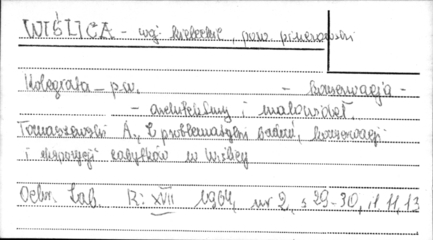 WIŚLICA - woj. kieleckie, pow. pinczowski
Kolegiata - p.w. - konserwacja -
- architektury i malowideł.
Tomaszewski A., Z problematyki badań, konserwacji
i ekspozycji zabytków w Wiślicy
Ochr. Zab. R: XVII 1964, nr 2, s 29-30, il 11, 13